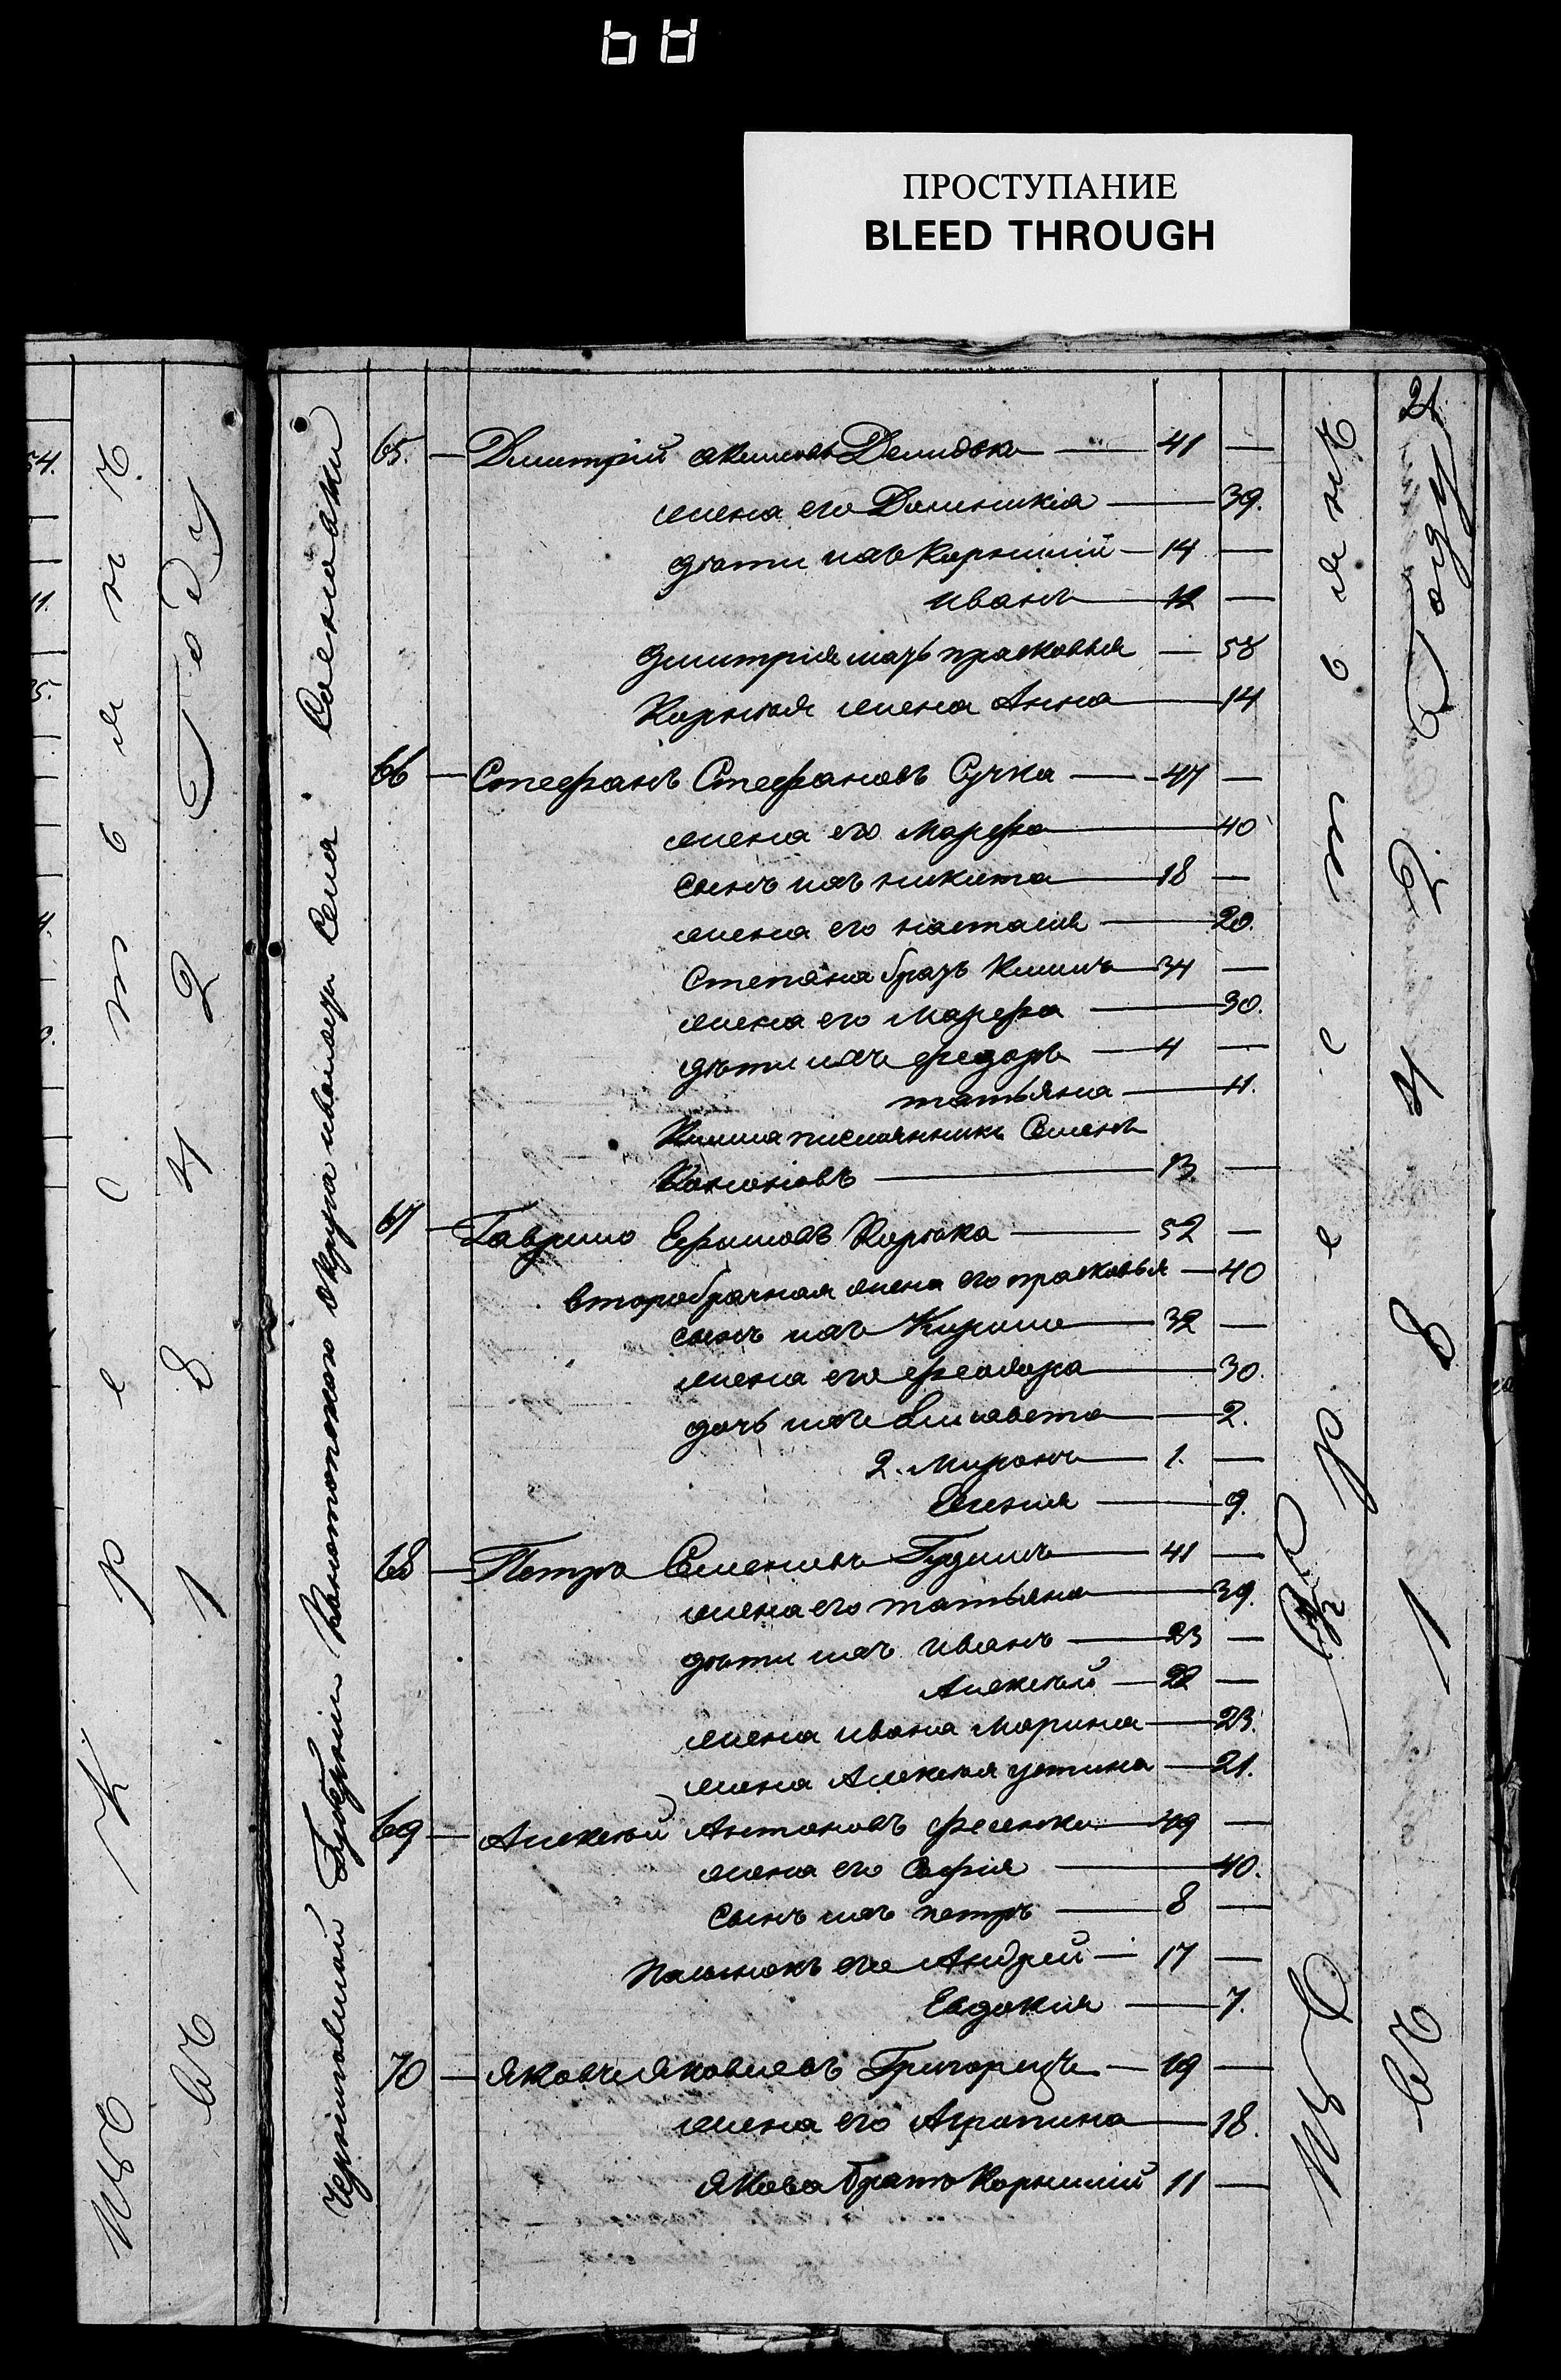 ПРОСТУПАНИЕ
BLEED THROUGH
21
Черниговской Губернии Конотопского округа
изъ Крестьянъ
въ 1842 Году
65. — Дмитрий Акимовъ Демидько — 41 —
жена его Доминикія — 39.
дѣти ихъ Корнилій — 14 —
иванъ — 12 —
дмитрия мать прасковья — 58
Корнѣя жена Анна — 14
66 — Стефанъ Стефановъ Сучка — 47 —
жена его Марфа — 40
сынъ ихъ никита — 18 —
жена его настасия — 20.
Степана братъ Климъ — 34 —
жена его Марфа — 30.
дѣти ихъ федоръ — 4 —
татьяна — 11.
Клима племянникъ Семенъ
Кононовъ — 13. —
67 — Гаврило Ефимовъ Кирѣка — 52 —
второбрачная жена его прасковья — 40
сынъ ихъ Кирило — 32 —
жена его феодора — 30.
дочь ихъ Елисавета — 2.
2. Миронъ — 1. —
Евгения — 9.
68 — Петръ Семеновъ Гудимъ — 41 —
жена его татьяна — 39.
дѣти ихъ иванъ — 23 —
Алексѣй — 22 —
жена ивана Марина — 23.
жена Алексѣя устина — 21.
69 — Алексѣй Антоновъ фесенко — 49 —
жена его Софія — 40.
сынъ ихъ петръ — 8 —
его Андрей — 17 —
Евдокия — 7.
70 — Яковъ Яковлевъ Григорецъ — 19 —
жена его Агрипина — 18.
Якова братъ Корнилій 11 —